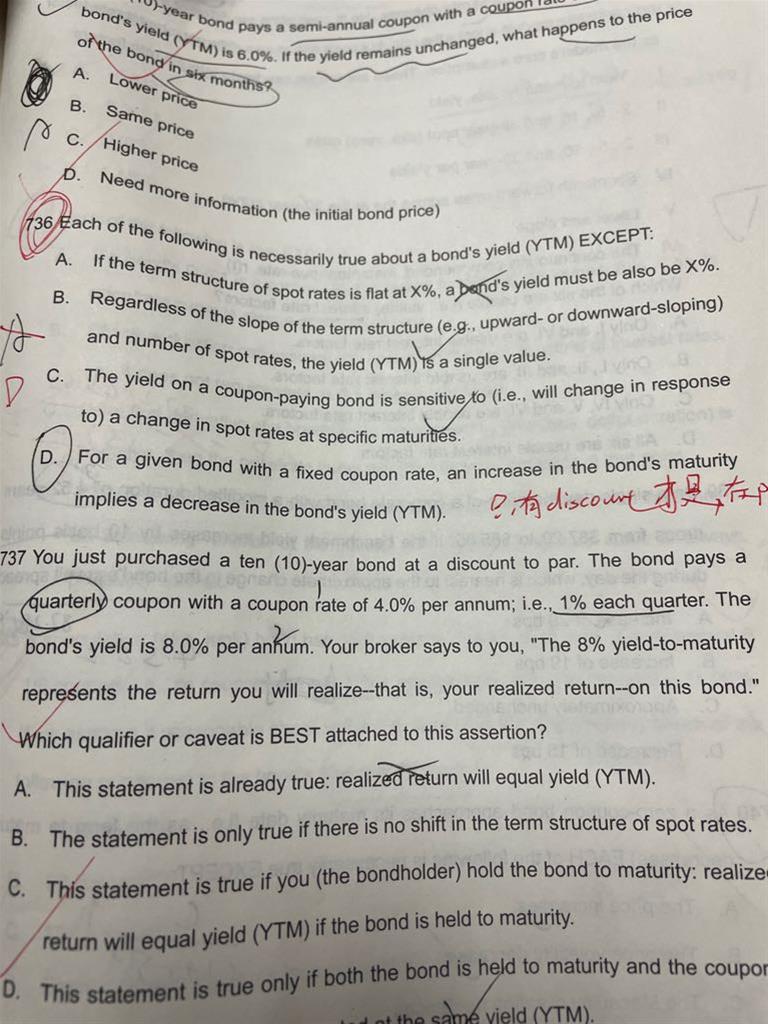 -year bond pays a semi-annual coupon with a coupon
bond's yield (YTM) is 6.0%. If the yield remains unchanged, what happens to the price
of the bond in six months?
A. Lower price
B. Same price
C. Higher price
D. Need more information (the initial bond price)
736 Each of the following is necessarily true about a bond's yield (YTM) EXCEPT:
A. If the term structure of spot rates is flat at X%, a bond's yield must be also be X%.
B. Regardless of the slope of the term structure (e.g., upward- or downward-sloping)
and number of spot rates, the yield (YTM) is a single value.
C. The yield on a coupon-paying bond is sensitive to (i.e., will change in response
D
to) a change in spot rates at specific maturities.
D. For a given bond with a fixed coupon rate, an increase in the bond's maturity
implies a decrease in the bond's yield (YTM). 只有discount才是,在p
737 You just purchased a ten (10)-year bond at a discount to par. The bond pays a
quarterly coupon with a coupon rate of 4.0% per annum; i.e., 1% each quarter. The
bond's yield is 8.0% per annum. Your broker says to you, "The 8% yield-to-maturity
represents the return you will realize--that is, your realized return--on this bond."
Which qualifier or caveat is BEST attached to this assertion?
A. This statement is already true: realized return will equal yield (YTM).
B. The statement is only true if there is no shift in the term structure of spot rates.
C. This statement is true if you (the bondholder) hold the bond to maturity: realize
return will equal yield (YTM) if the bond is held to maturity.
D. This statement is true only if both the bond is held to maturity and the coupon
at the same yield (YTM).